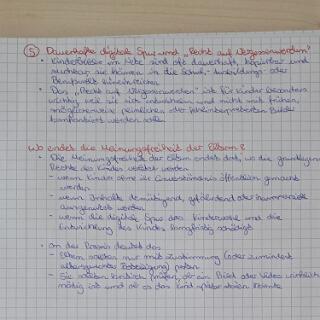 5 Dauerhafte digitale Spur und „Recht auf Vergessenwerden"
• Kinderfotos im Netz sind oft dauerhaft, kopierbar und
suchbar sie können in die Schul-, Ausbildungs- oder
Berufszeit hineinreichen
• Das „Recht auf Vergessenwerden" ist für Kinder besonders
wichtig weil sie sich entwickeln und nicht mit frühen,
möglicherweise peinlichen oder Bilder
konfrontiert werden sollen
Wo endet die Meinungsfreiheit der Eltern?
• Die Meinungsfreiheit der Eltern endet dort, wo die grundlegenden
Rechte des Kindes verletzt werden
- wenn Kinder ohne ihr Einverständnis öffentlich gemacht
werden
- wenn Inhalte demütigend, gefährdend oder kommerziell
ausgenutzt werden
- wenn die digitale Spur das Kindeswohl und die
Entwicklung des Kindes langfristig schädigt
• In der Praxis bedeutet das
- Eltern sollten nur mit Zustimmung (oder zumindest
altersgerechter Beteiligung) posten
- Sie sollten kritisch prüfen, ob ein Bild oder Video wirklich
nötig ist und ob es das Kind später stören könnte